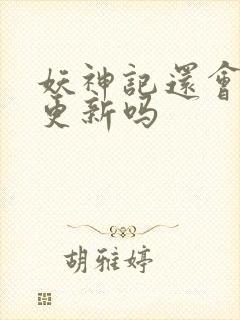 妖神記還會
更新吗
胡雅婷